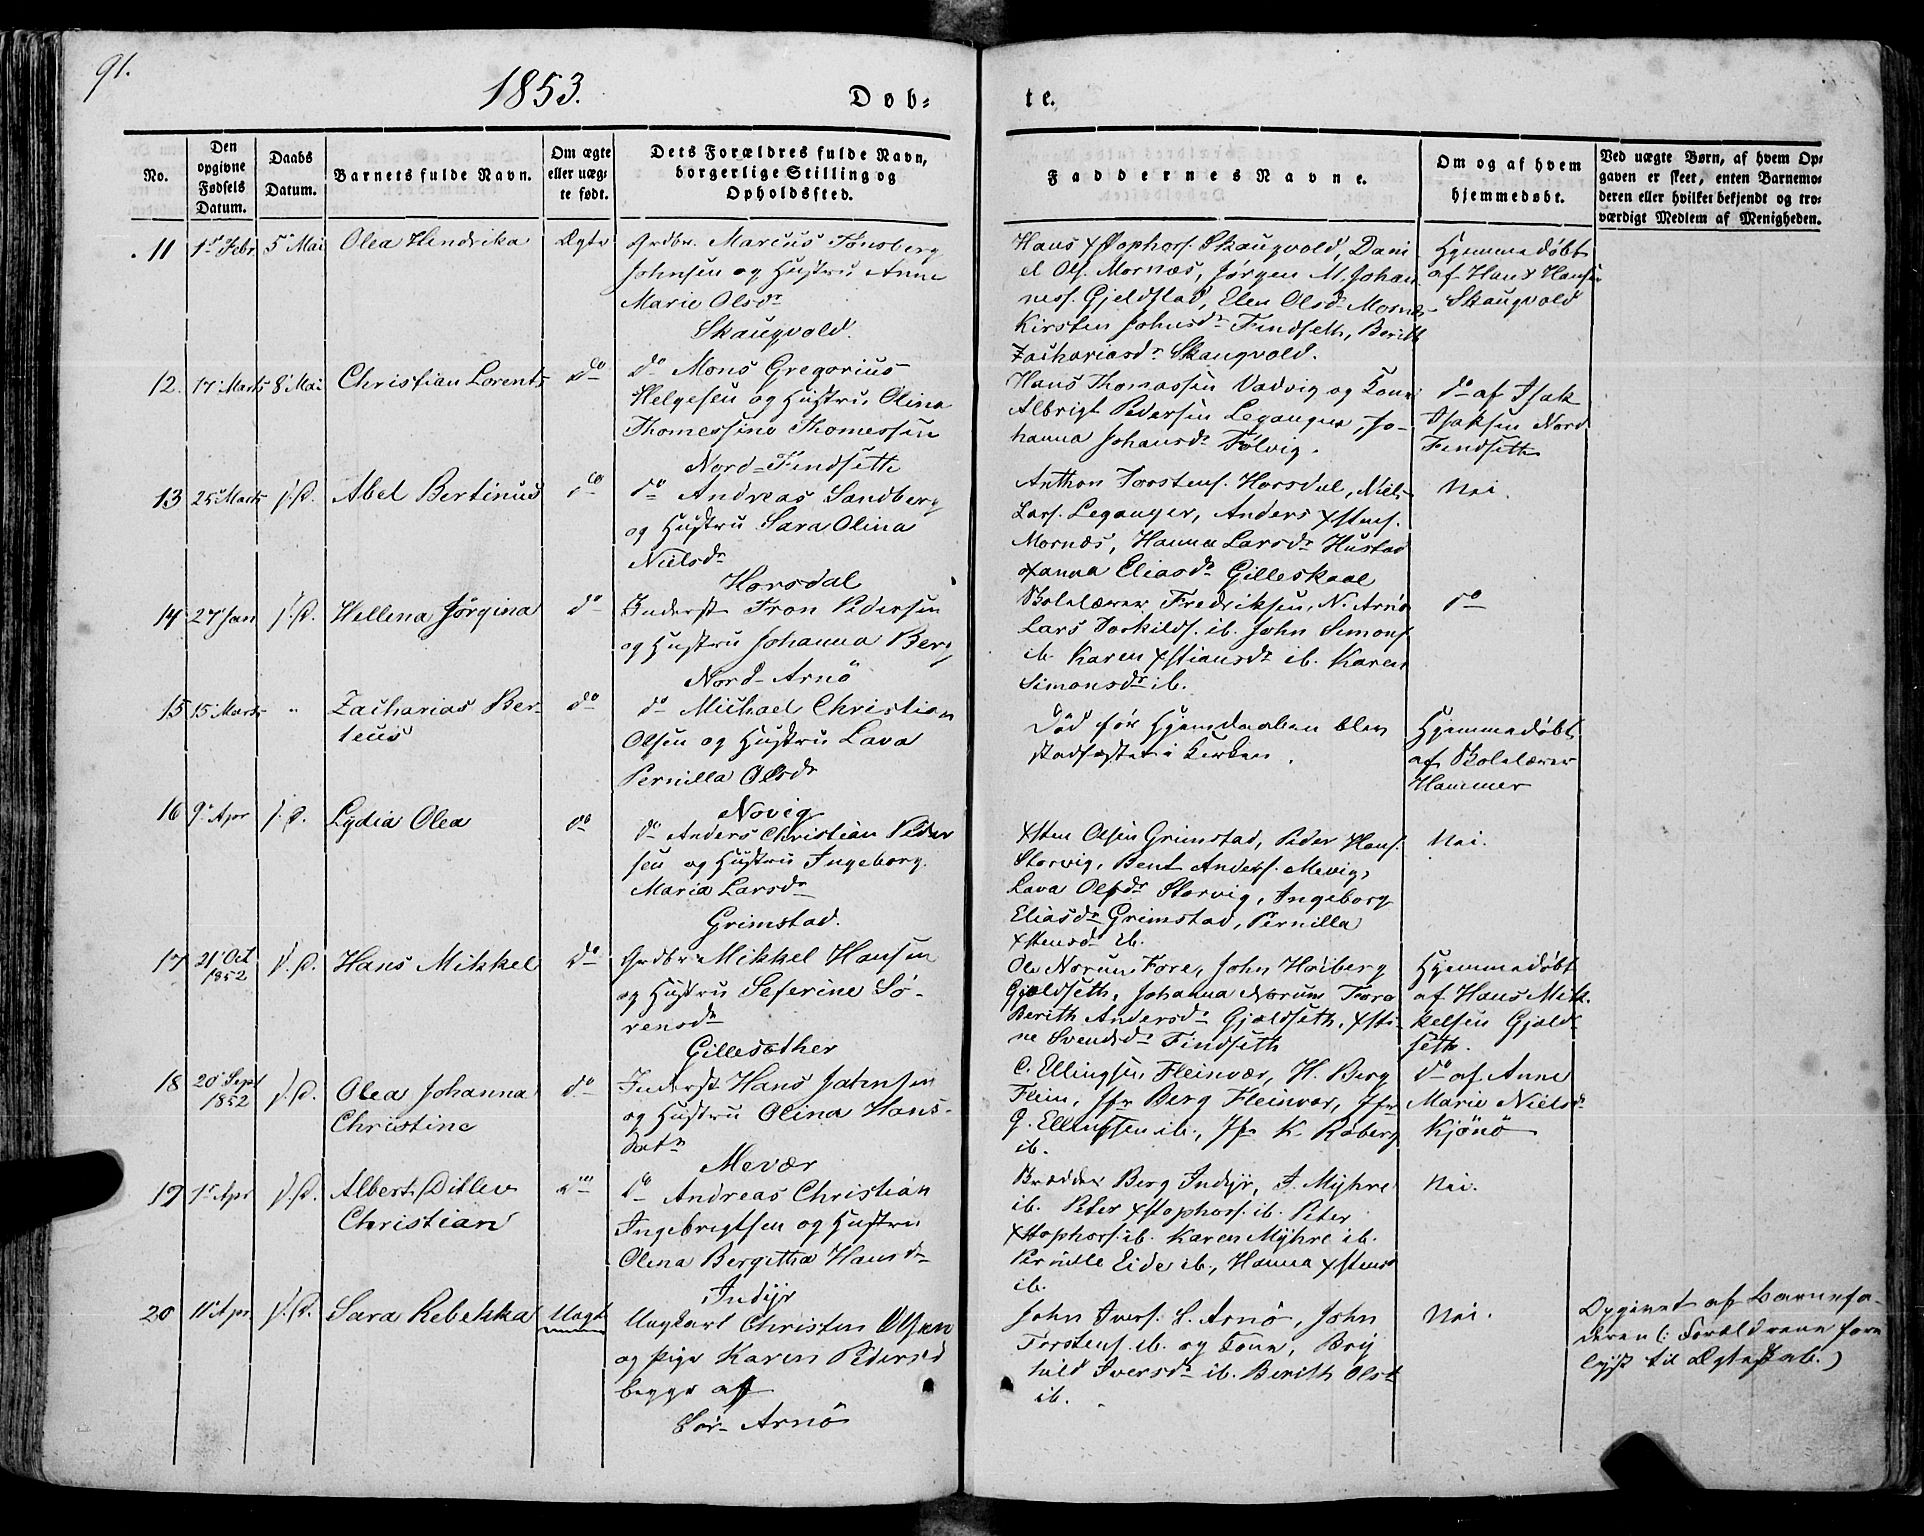 91.
1853.
Døb-
te.
No.
Den opgivne Fødsels Datum.
Daabs Datum.
Barnets fulde Navn.
Om ægte eller uægte født.
Dets Forældres fulde Navn, borgerlige Stilling og Opholdssted.
Faddernes Navne.
Om og af hvem hjemmedøbt.
Ved uægte Børn, af hvem Opgaven er skeet, enten Barnemoderen eller hvilket bekjendt og troværdigt Medlem af Menigheden.
11
1st Febr.
5 Mai
Olea Hendrika
Ægte
Grdbr. Marcus Tønsberg
Johnsen og Hustru Anne
Marie Olsdr
Skaugvold.
Hans Xstophers. Skaugvold, Dani
el Ols. Mornæs, Jørgen M. Johan
ness. Gjeldstad, Elen Olsdr Mornæs
Kirsten Johnsdr Findseth, Berith
Zachariasdr Skaugvold.
Hjemmedøbt
af Hans Hansen
Skaugvold
12.
17 Marts
8 Mai
Christian Lorents
do
do Mons Gregorius
Helgesen og Hustru Olina
Thomessine Thomessen
Nord-Findseth
Hans Thomassen Vadvig og Kone
Albrigt Pedersen Leganger, Jo-
hanna Johansdr Tølvig.
do af Isak
Isaksen Nord
Findseth
13
25 Marts
s. D.
Abel Bertinus
do
do Andreas Sandberg
og Hustru Sara Olina
Nielsdr
Horsdal
Anthon Torstens. Horsdal, Niels
Lars. Leganger, Anders Xstens.
Mornæs, Hanna Larsdr Hustad
Hanna Eliasdr Gilleskaal
Nei.
14
27 Jan
s. D.
Hellena Jørgina
do
Inderst Tron Pedersen
og Hustru Johanna Berg
Nord-Arnø
Skolelærer Fredriksen, N. Arnø
Lars Torkilds. ib. John Simons.
ib. Karen Xstiansdr ib. Karen
Simonsdr ib.
do
15
15 Marts
"
Zacharias Ber-
teus
do
do Michael Christian
Olsen og Hustru Lava
Pernilla Olsdr
Novig
Død før Hjemdaaben blev
stadfæstet i Kirken.
Hjemmedøbt
af Skolelærer
Hammer
16
9 Apr
s. D.
Lydia Olea
do
do Anders Christian Peder
sen og Hustru Ingeborg
Maria Larsdr
Grimstad.
Xsten Olsen Grimstad, Peder Hans.
Storvig, Bent Anders. Mevig,
Lava Olsdr Storvig, Ingeborg
Eliasdr Grimstad, Pernilla
Xstensdr ib.
Nei.
17
21 Oct
1852
s. D.
Hans Mikkel
do
Grdbr Mikkel Hansen
og Hustru Seferine Sø-
rensdr
Gillesæther
Ole Norum Fore, John Høiberg
Gjældseth, Johanna Norum Fore
Berith Andersdr Gjældseth, Xsti-
ne Svendsdr Findseth
Hjemmedøbt
af Hans Mik-
kelsen Gjæld-
seth.
18
20 Sept
1852
s. D.
Olea Johanna
Christine
do
Inderst Hans Johnsen
og Hustru Olina Hans-
datr
Mevær
C. Ellingsen Fleinvær, H. Berg
Flein, Jfr Berg Fleinvær, Jfr
G. Ellingsen ib., Jfr K. Roberg
ib.
do af Anne
Marie Nielsdr
Kjønø
19
1st Apr
s. D.
Albert Ditlev
Christian
do
do Andreas Christian
Ingebrigtsen og Hustru
Olena Bergitha Hansdr
Indyr
Berg Indyr, J. Myhre
ib. Peter Xstophers. ib. Peter
Xstophers. ib. Karen Myhre ib.
Pernille Eide ib., Hanna Xstensdr
ib.
Nei.
20
11 Apr
s. D.
Sara Rebekka
Uægte
Ungkarl Christen Olsen
og Pige Karen Pedersd
begge af
Sør-Arnø
John Ivers. S. Arnø, John
Torstens. ib. og Kone,
hild Iversdr ib. Berith Olsd
ib.
Nei.
Opgivet af Barnefa-
deren (: Forældrene for
lyst til Ægteskab.)